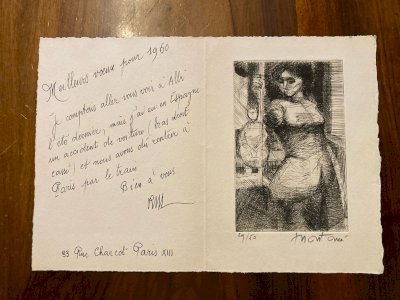 Meilleurs vœux pour 1960
je comptais aller vous voir à Albi
l'été dernier, mais j'ai eu en Espagne
un accident de voiture (bras droit
cassé) et nous avons dû rentrer à
Paris par le train.
Bien à vous
33 Rue Charcot Paris XIII